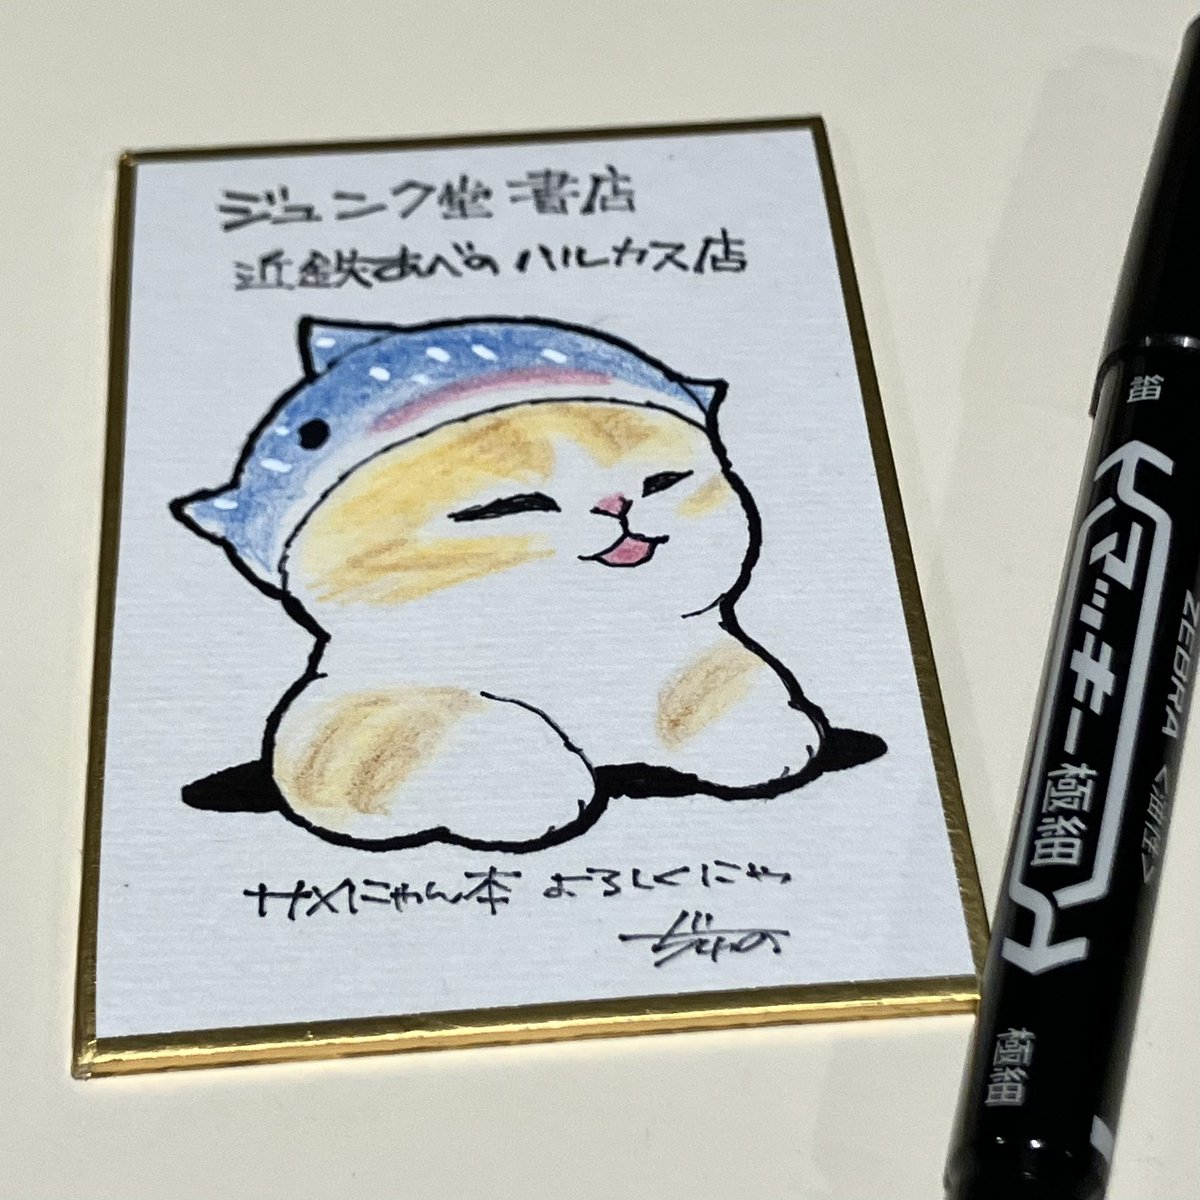 ジュンク堂書店
近鉄あべのハルカス店
サメにゃん本 よろしくにゃ
細
マッキー極細
ZEBRA <油性>
極細